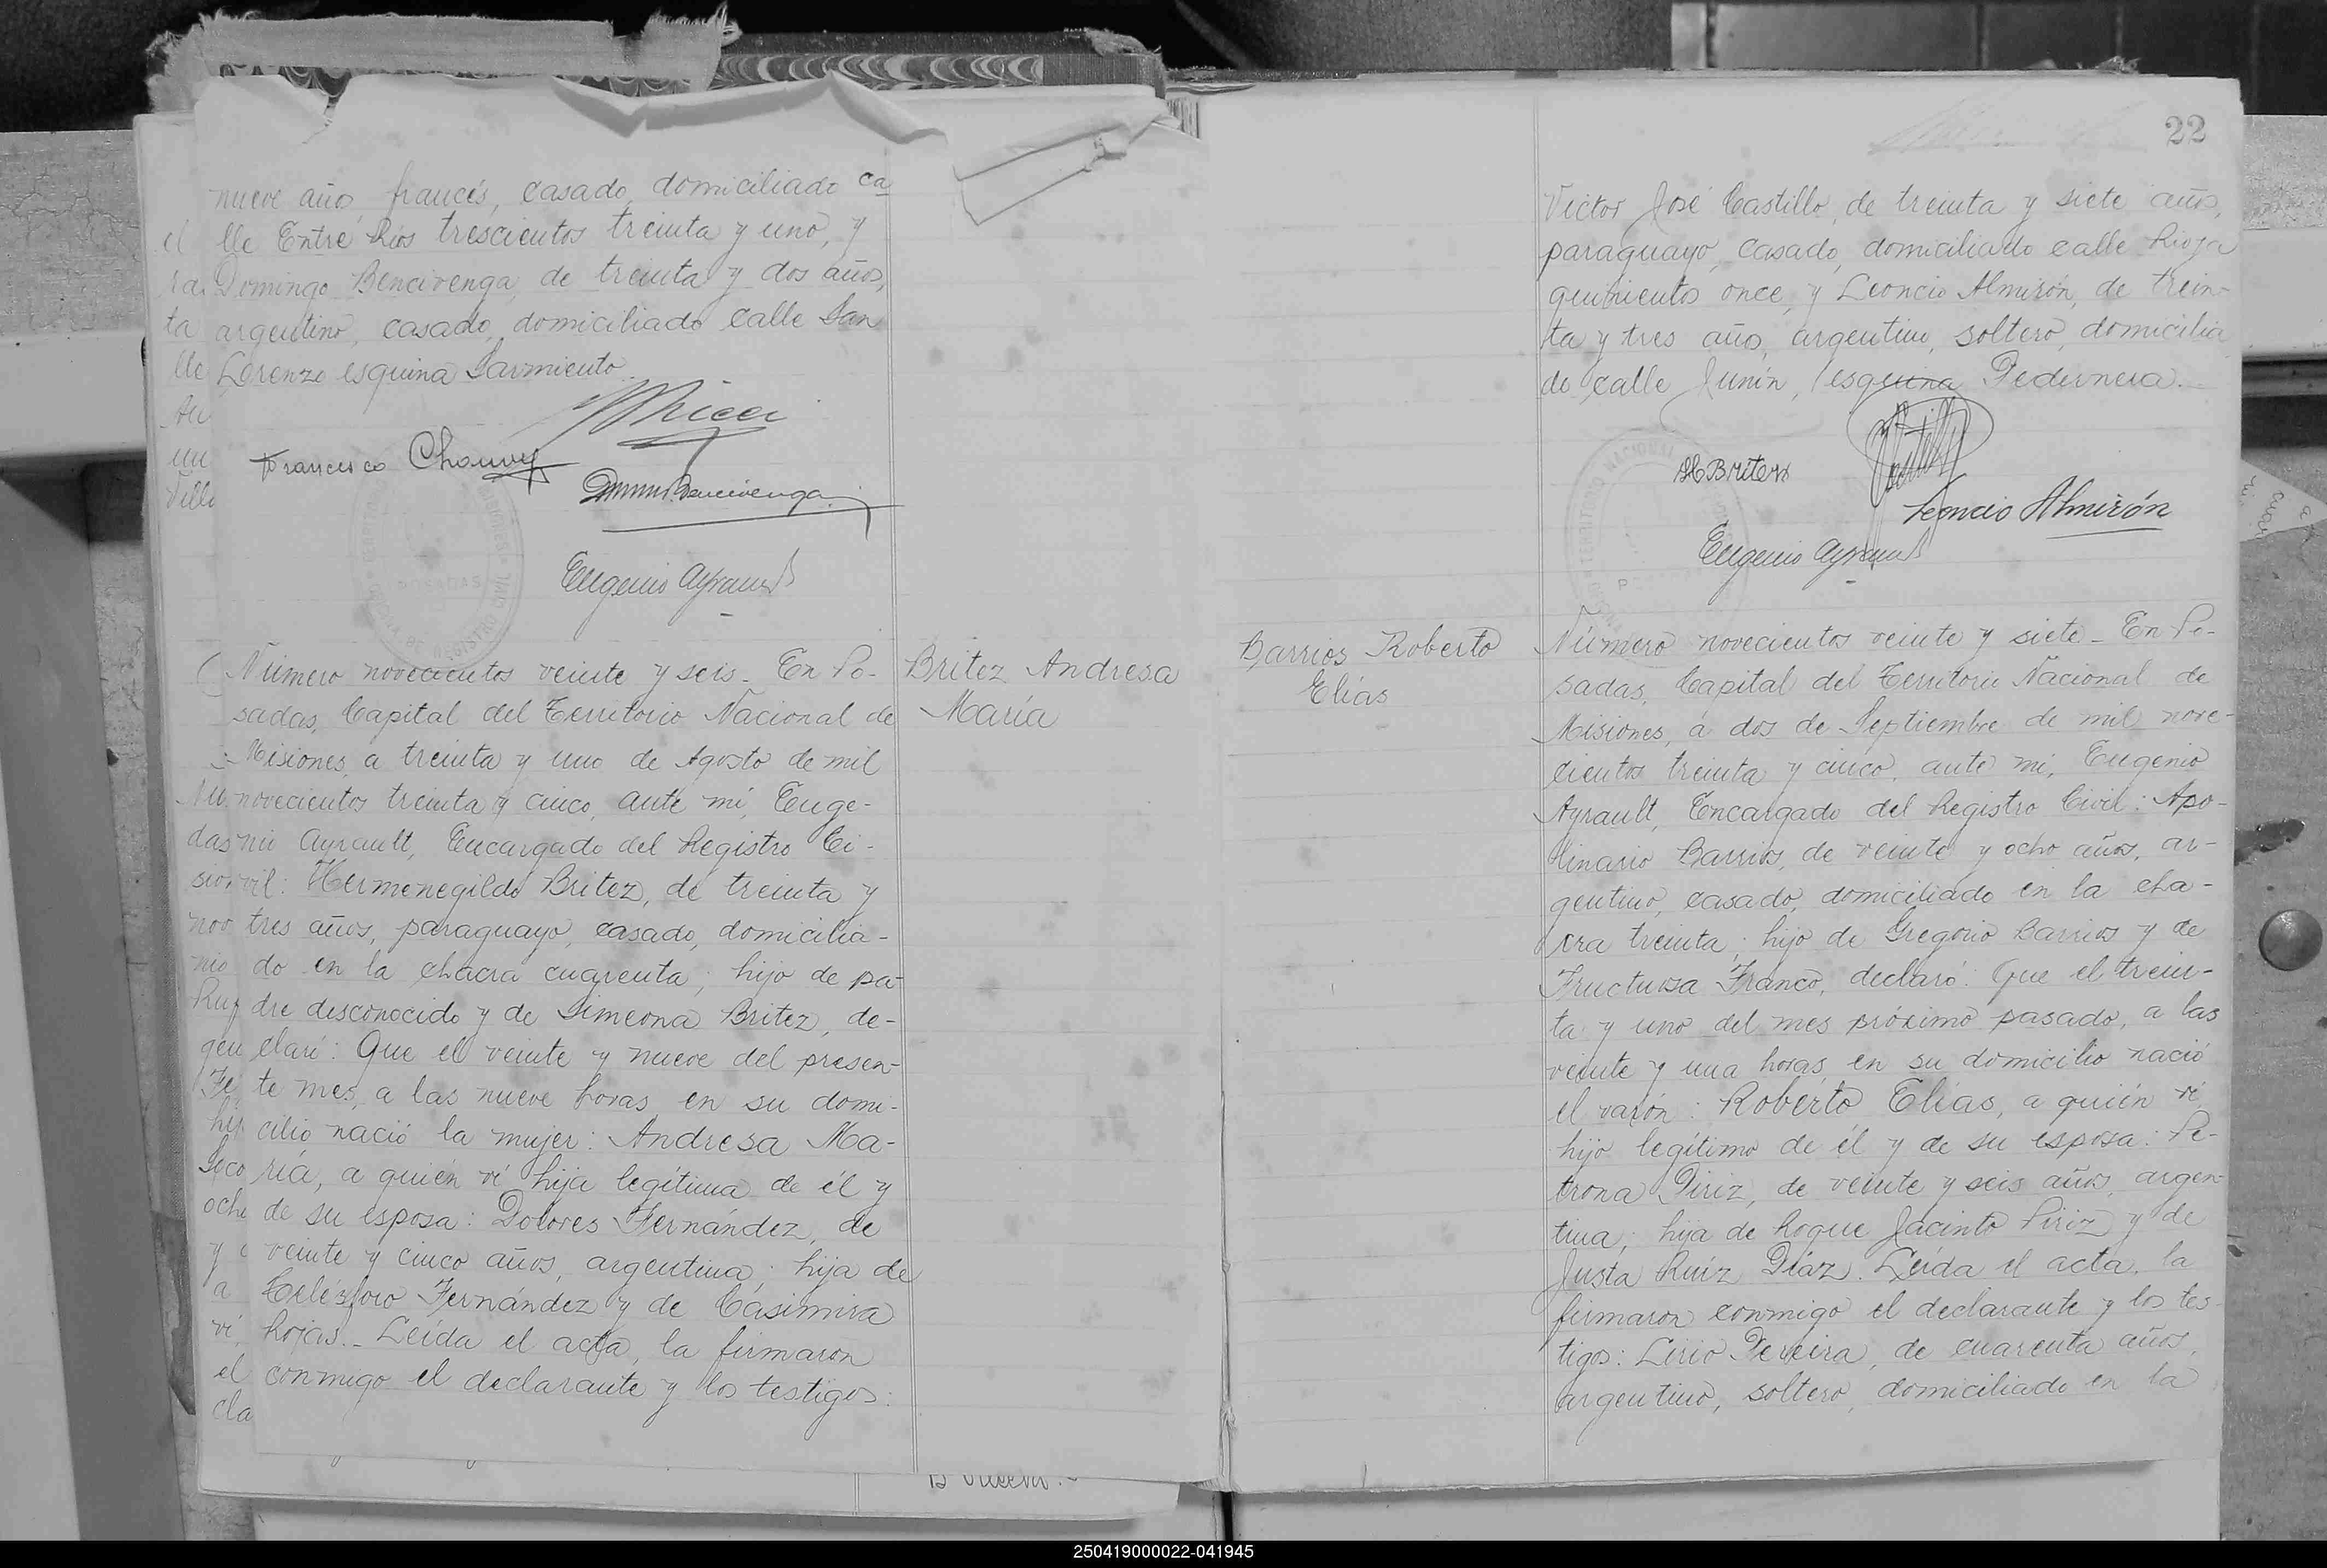 nueve año, francés, casado, domiciliado ca
lle Entre Rios trescientos treinta y uno, y
Domingo Bencivenga, de treinta y dos años,
argentino, casado, domiciliado calle San
Lorenzo esquina Sarmiento.
Francisco
Eugenio Ayrault
Número novecientos veinte y seis. En Po-
sadas, Capital del Territorio Nacional de
Misiones, a treinta y uno de Agosto de mil
novecientos treinta y cinco, ante mí, Euge-
nio Ayrault, Encargado del Registro Ci-
vil: Hermenegildo Britez, de treinta y
tres años, paraguayo, casado, domicilia-
do en la chacra cuarenta; hijo de pa-
dre desconocido y de Simeona Britez, de-
claró: Que el veinte y nueve del presen-
te mes, a las nueve horas en su domi-
cilio nació la mujer: Andresa Ma-
ría, a quién ví hija legítima de él y
de su esposa: Dolores Fernández, de
veinte y cinco años, argentina; hija de
Celésforo Fernández y de Casimira
Rojas.- Leída el acta, la firmaron
conmigo el declarante y los testigos:
Britez Andresa
María
22
Victor José Castillo, de treinta y siete años,
paraguayo, casado, domiciliado calle Rioja
quinientos once, y Leoncio Almirón, de trein-
ta y tres año, argentino, soltero, domicilia
do calle Junín, esquina Pedernera.
Leoncio Almirón
Eugenio Ayrault
Barrios Roberto
Elías
Número novecientos veinte y siete - En Po-
sadas, Capital del Territorio Nacional de
Misiones, á dos de Septiembre de mil nove-
cientos treinta y cinco, ante mi, Eugenio
Ayrault, Encargado del Registro Civil: Apo-
linario Barrios, de veinte y ocho años, ar-
gentino, casado, domiciliado en la cha-
cra treinta; hijo de Gregorio Barrios y de
Fructuosa Franco, declaró: Que el trein-
ta y uno del mes próximo pasado, a las
veinte y una horas en su domicilio nació
el varón: Roberto Elías, a quién ví,
hijo legítimo de él y de su esposa: Pe-
trona Piriz, de veinte y seis años, argen-
tina; hija de Roque Jacinto Piriz y de
Justa Ruíz Díaz. Leída el acta, la
firmaron conmigo el declarante y los tes-
tigos: Lirio Pereira, de cuarenta años,
argentino, soltero, domiciliado en la
250419000022-041945